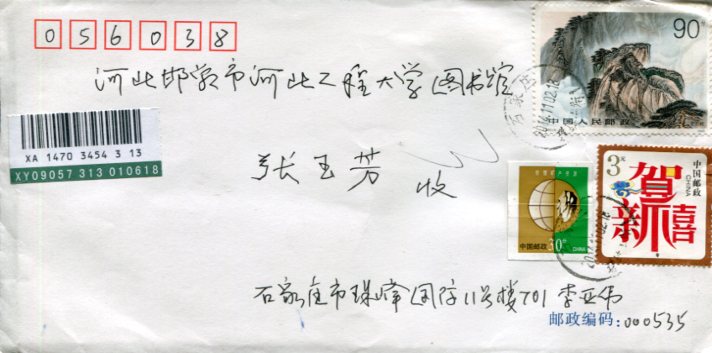 056038
90
河北邯郸市河北工程大学图书馆
中国人民邮政
XA 1470 3454 3 13
XY09057 313 010618
张玉芳 收
中国邮政 30分 CHINA
3元
中国邮政
CHINA
贺新禧
石家庄市珠峰国际11号楼701 李亚伟
邮政编码：000535